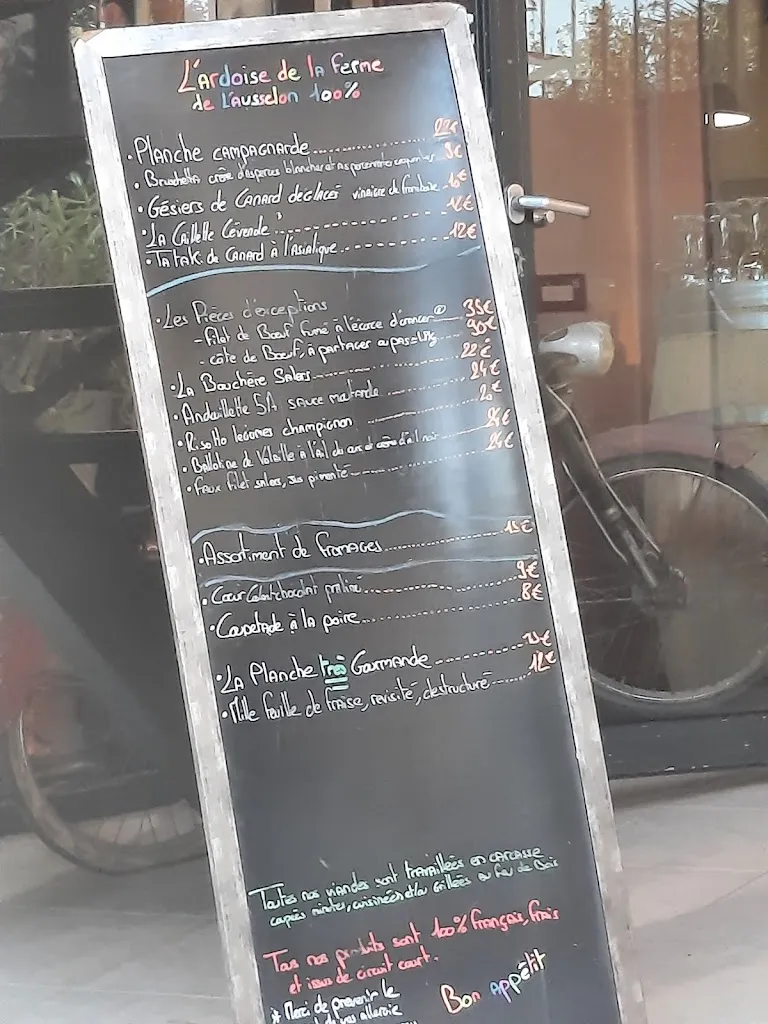 L'Ardoise de la ferme
de L'Ausselon 100%
• Planche campagnarde 22€
• Bruschetta crème d'asperges blanches et 9€
• Gésiers de Canard déglacés vinaigre de framboise
• La Caillette Cévenole 12€
• Tatak de Canard à l'Asiatique 12€
• Les Pièces d'exceptions
- Filet de Bœuf fumé à l'écorce d'oranger 35€
- côte de Bœuf, à partager ou pas 1,1kg 90€
• La Bouchère Salers 22€
• Andouillette 5A sauce moutarde 24€
• Risotto légumes champignon
• Ballotine de Volaille à l'ail des ours et crème d'ail noir 24€
• Faux filet salers, jus pimenté 26€
• Assortiment de fromages 15€
• Cœur Coulant chocolat praliné 9€
• Coupetade à la poire 8€
• La Planche très Gourmande
• Mille feuille de fraise, revisité, destructuré 12€
Toutes nos viandes sont travaillées en carcasse
coupées minutes, cuisinées et/ou grillées au feu de Bois
Tous nos produits sont 100% français, frais
et issus de circuit court.
* Merci de prévenir le
de vos allergie
Bon appétit